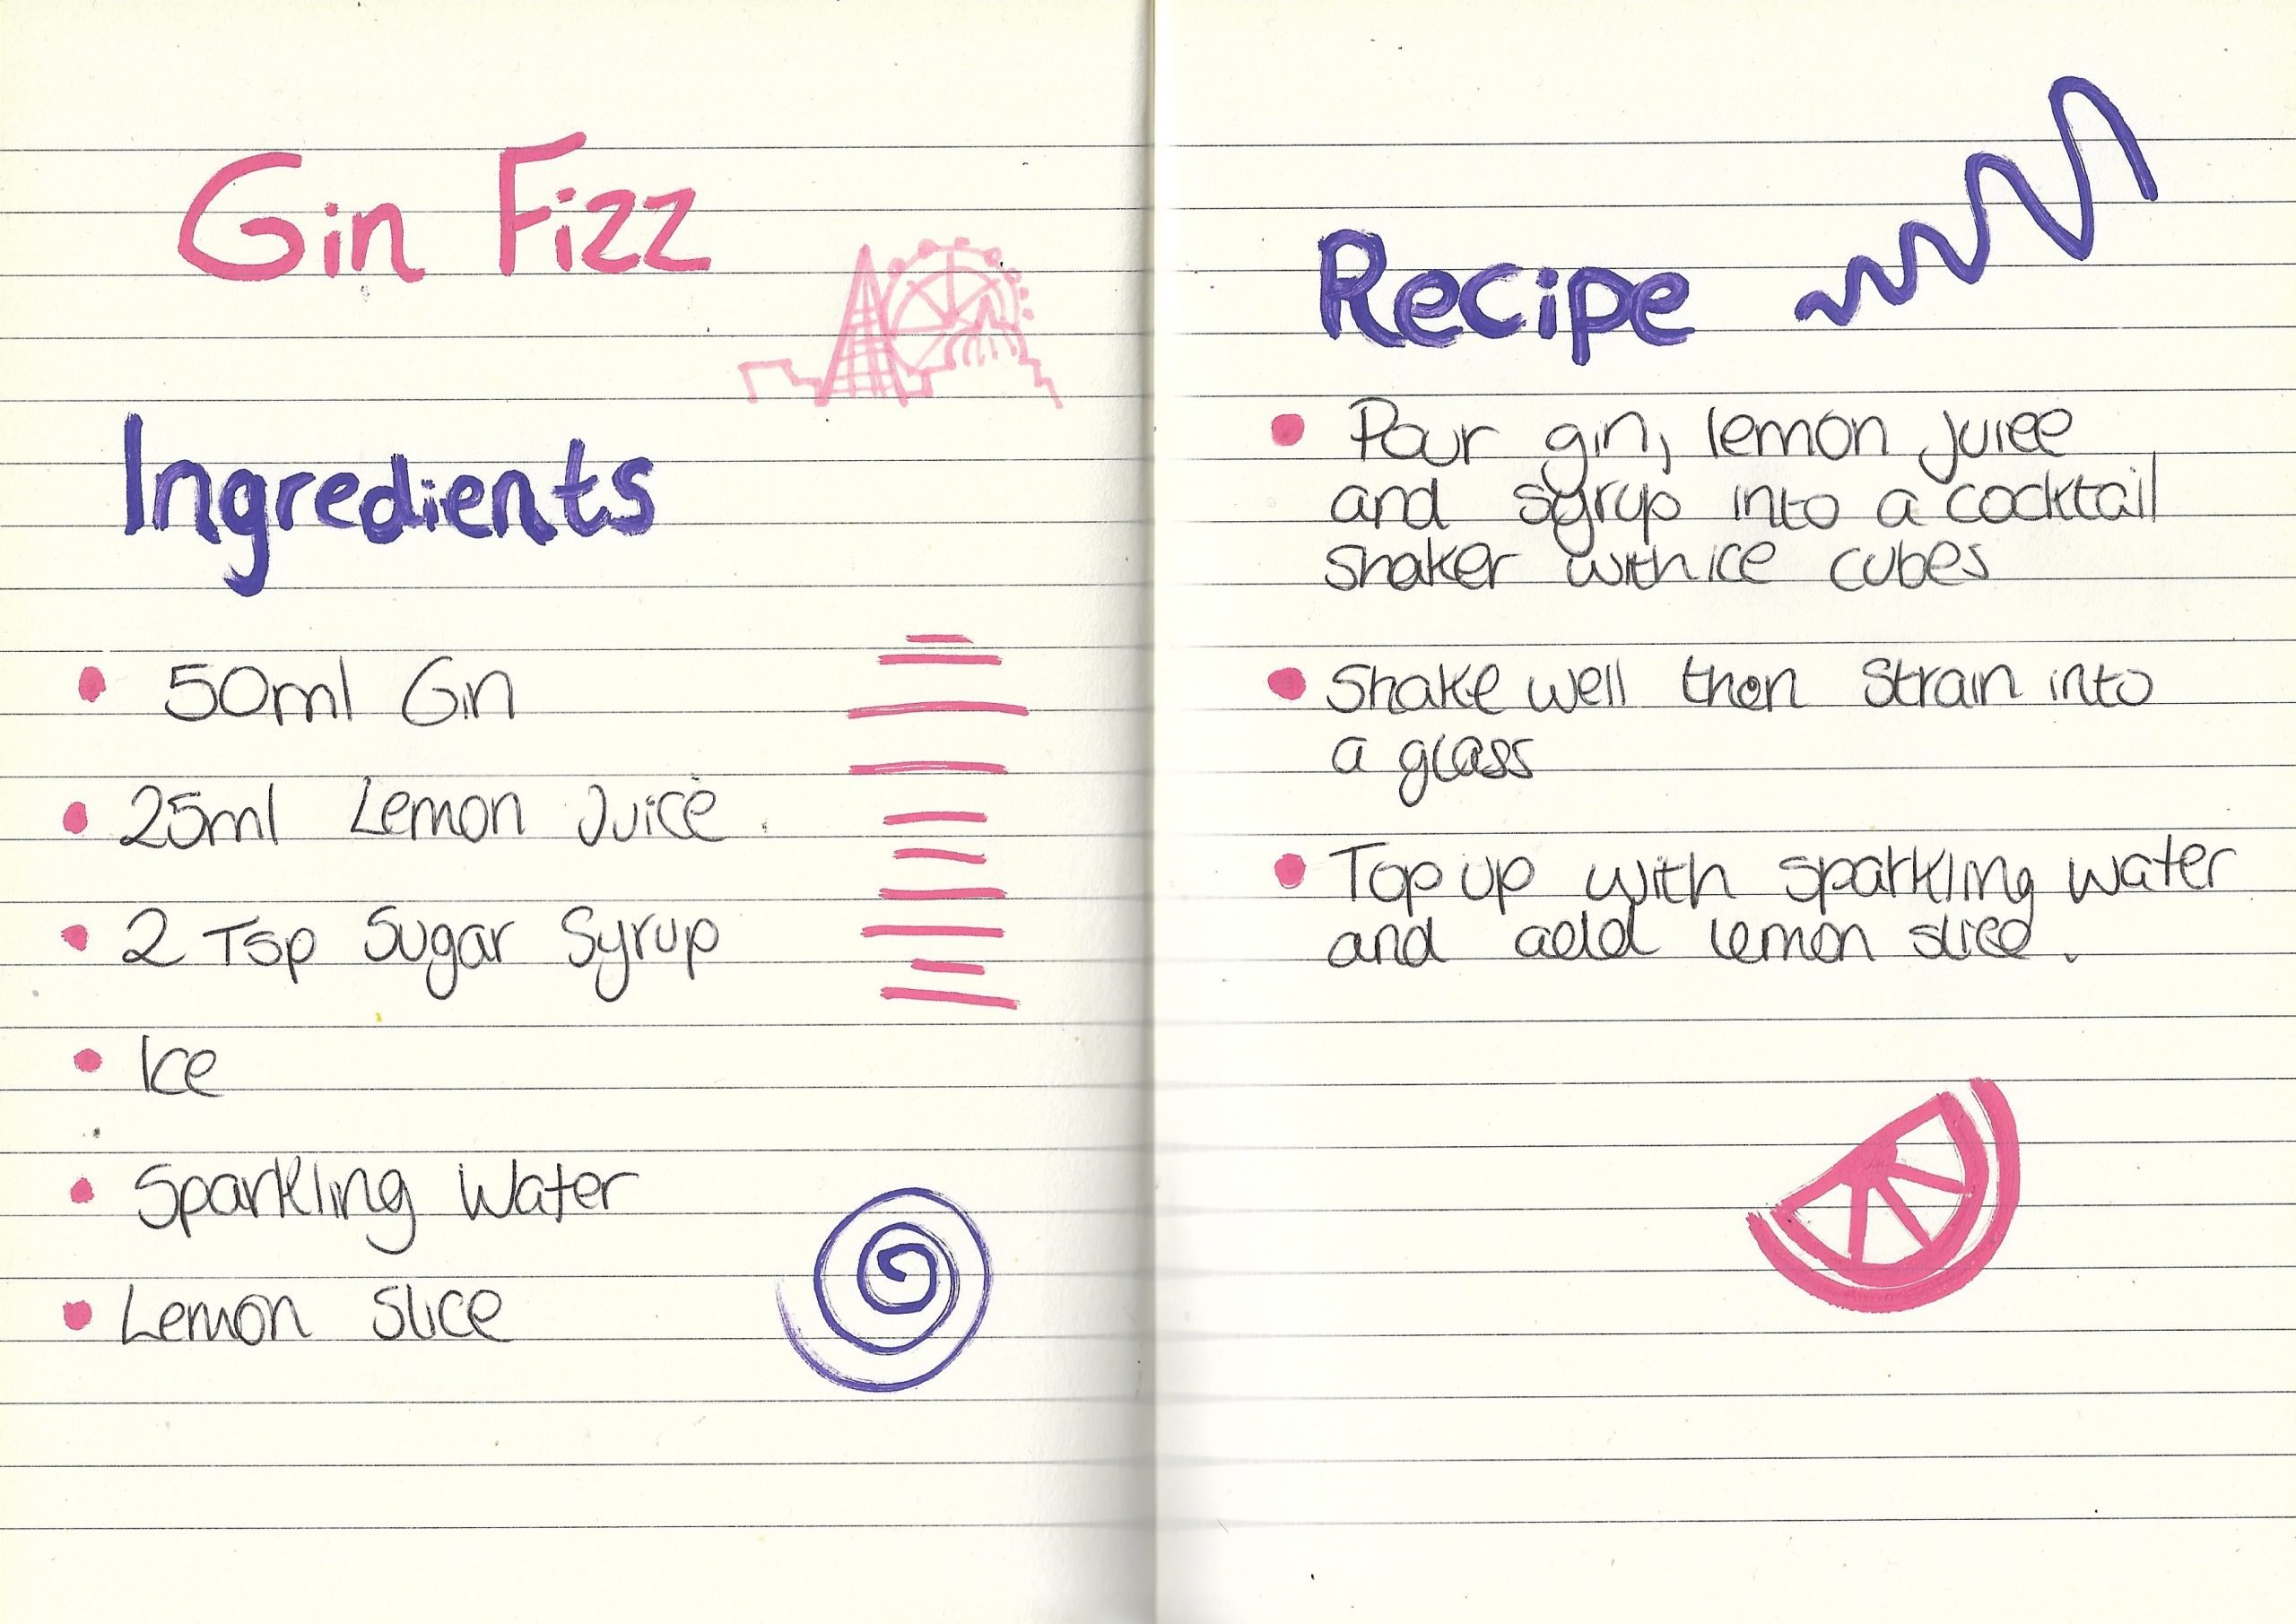 Gin Fizz
Ingredients
50ml Gin
25ml Lemon Juice
2 Tsp Sugar Syrup
Ice
Sparkling Water
Lemon Slice
Recipe
Pour gin, lemon juice
and syrup into a cocktail
shaker with ice cubes
Shake well then strain into
a glass
Top up with sparkling water
and add lemon slice.